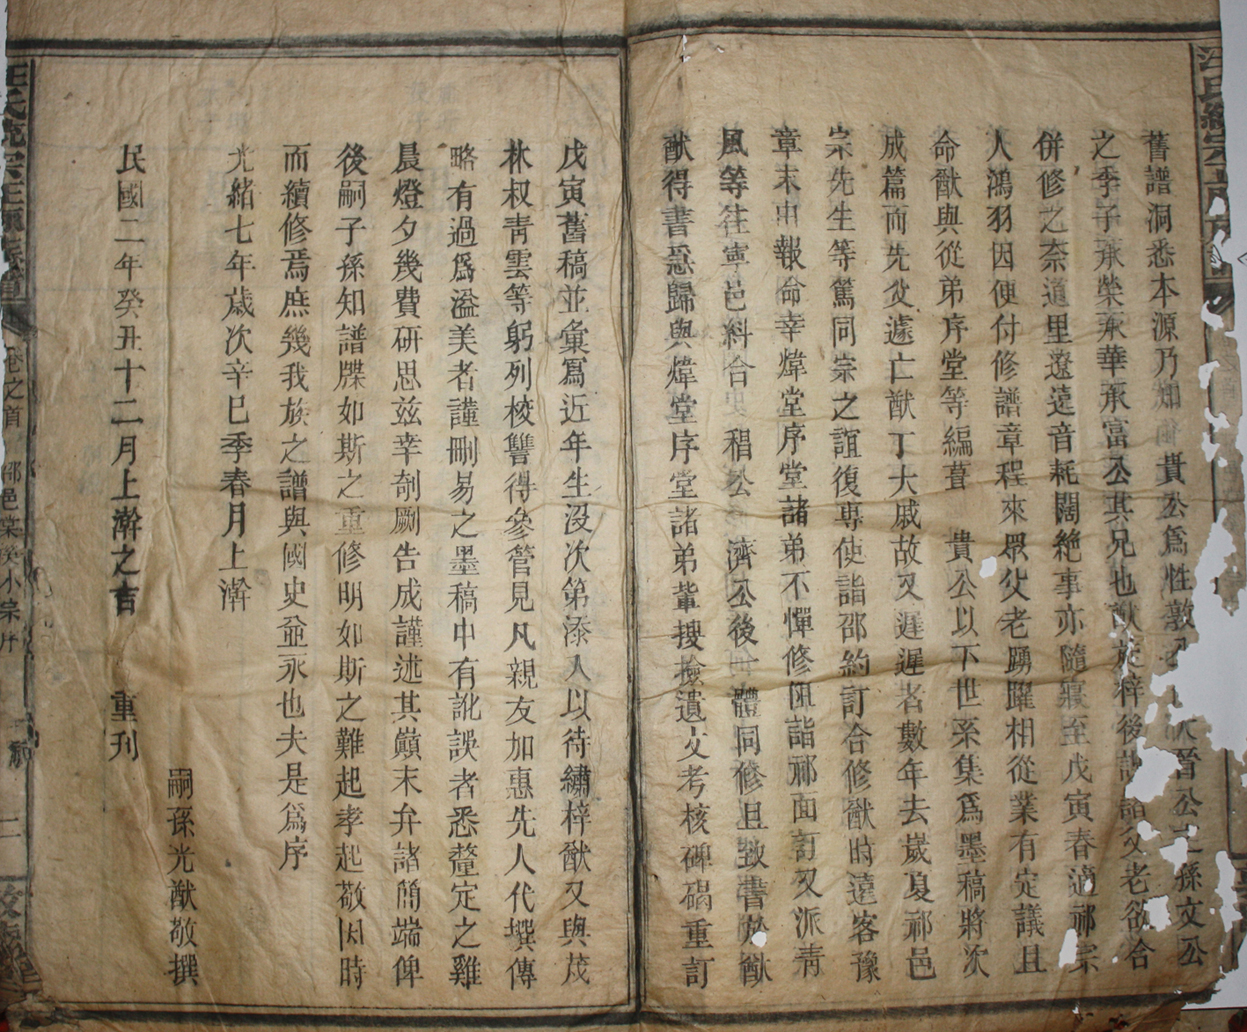 舊譜洞悉本源乃知 貴公爲性敦 晉公之孫文公
之季子承榮承華承富公其兄也猷族梓後 父老欲合
併修之奈道里遼遠音耗闊絶事亦隨寢至戊寅春適祁宗
人鴻羽因便付修譜章程來眾父老踴躍相從業有定議且
命猷與從弟序堂等編葺 貴公以下世系集爲墨稿將次
成篇而先父遽亡猷丁大戚故又遲遲者數年去歲夏祁邑
宗先生等篤同宗之誼復專使詣邵約訂合修猷時遠客豫
章末由報命幸煒堂序堂諸弟不憚修阻詣祁面訂又派靑
風等往寧邑料合 稆公濟公後一體同修且致書於猷
猷得書急歸與煒堂序堂諸弟輩搜撿遺文考核碑碣重訂
戊寅舊稿並彙寫近年生沒次第添入以待繡梓猷又與茂
林叔靑雲等躬列校讐得參管見凡親友加惠先人代撰傳
略有過爲溢美者謹刪易之墨稿中有訛誤者悉釐定之雞
晨燈夕幾費研思兹幸剞劂告成謹述其巔末弁諸簡端俾
後嗣子孫知譜牒如斯之重修明如斯之難起孝起敬因時
而續修焉庶幾我族之譜與國史並永也夫是爲序
光緒七年歲次辛巳季春月上澣
嗣孫光猷敬撰
民國二年癸丑十二月上澣之吉 重刊
卷之首
小宗序
二